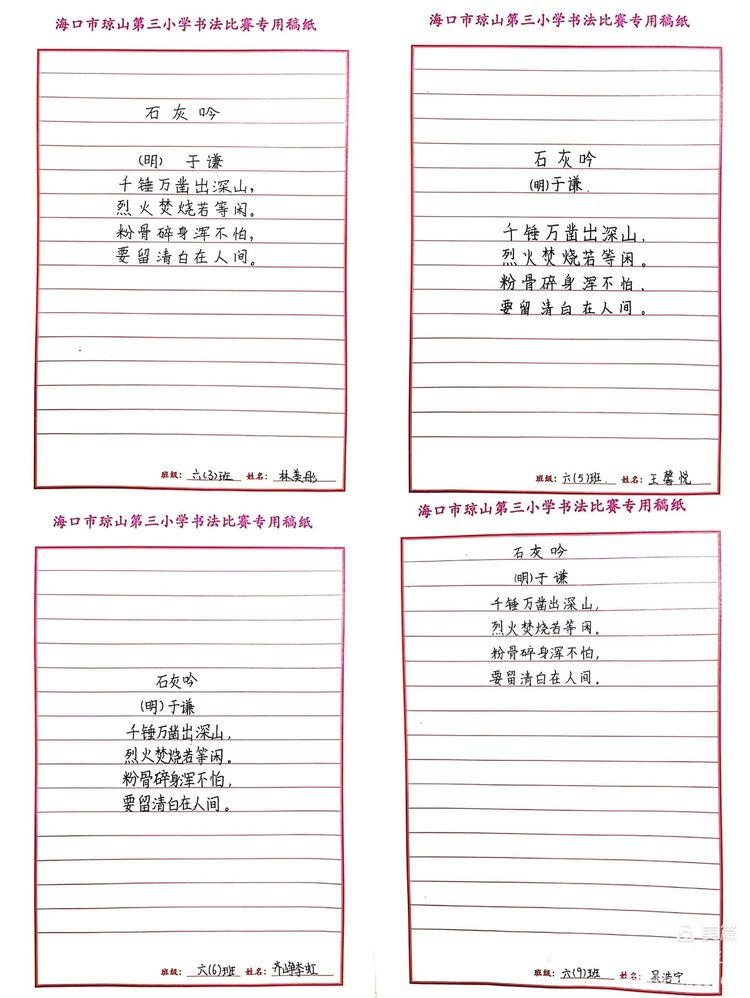 海口市琼山第三小学书法比赛专用稿纸
石灰吟
(明) 于谦
千锤万凿出深山,
烈火焚烧若等闲。
粉骨碎身浑不怕,
要留清白在人间。
班级: 六(3)班 姓名: 林美彤
海口市琼山第三小学书法比赛专用稿纸
石灰吟
(明)于谦
千锤万凿出深山,
烈火焚烧若等闲。
粉骨碎身浑不怕,
要留清白在人间。
班级: 六(5)班 姓名: 王馨悦
海口市琼山第三小学书法比赛专用稿纸
石灰吟
(明)于谦
千锤万凿出深山,
烈火焚烧若等闲。
粉骨碎身浑不怕,
要留清白在人间。
班级: 六(6)班 姓名:
海口市琼山第三小学书法比赛专用稿纸
石灰吟
(明)于谦
千锤万凿出深山,
烈火焚烧若等闲。
粉骨碎身浑不怕,
要留清白在人间。
班级: 六(9)班 姓名: 吴浩宁
美篇